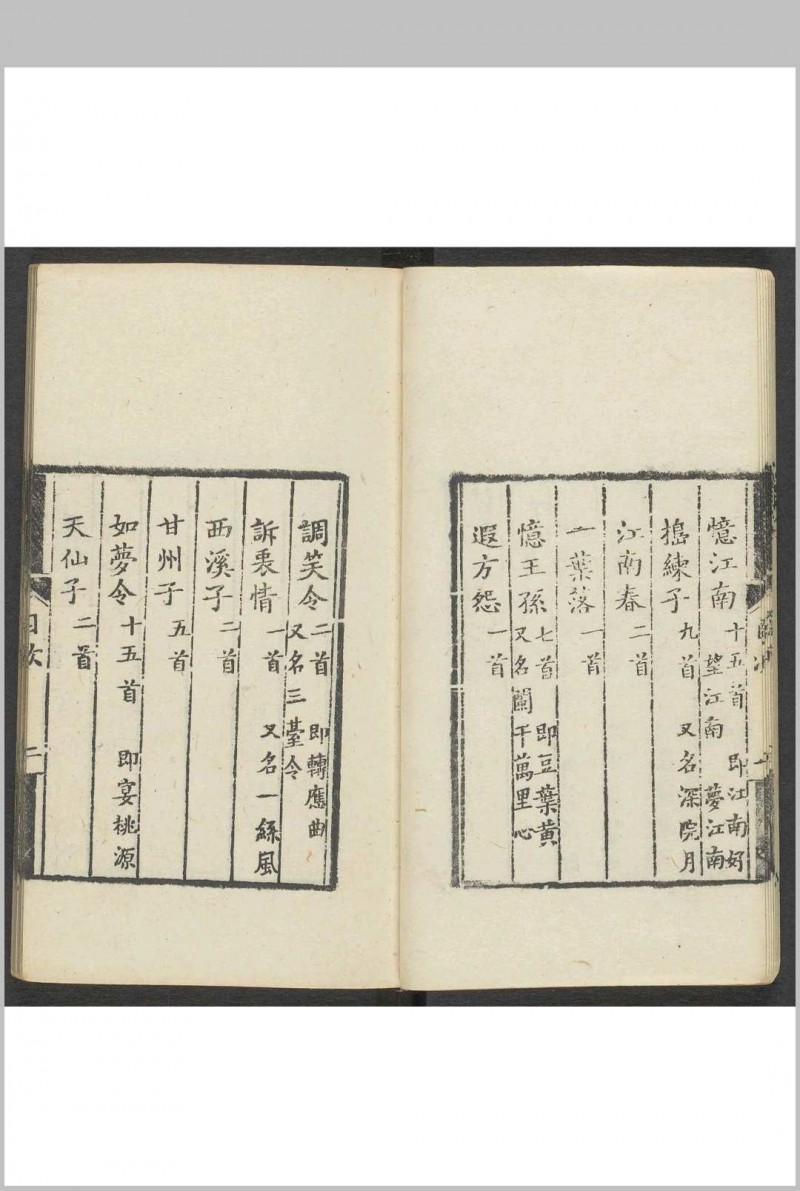 憶江南十五首 即江南好
望江南 夢江南
搗練子九首 又名深院月
江南春二首
一葉落一首
憶王孫七首 即豆葉黃
又名闌干萬里心
遐方怨一首
調笑令二首 即轉應曲
又名三臺令
訴衷情一首 又名一絲風
西溪子二首
甘州子五首
如夢令十五首 即宴桃源
天仙子二首
目次
二